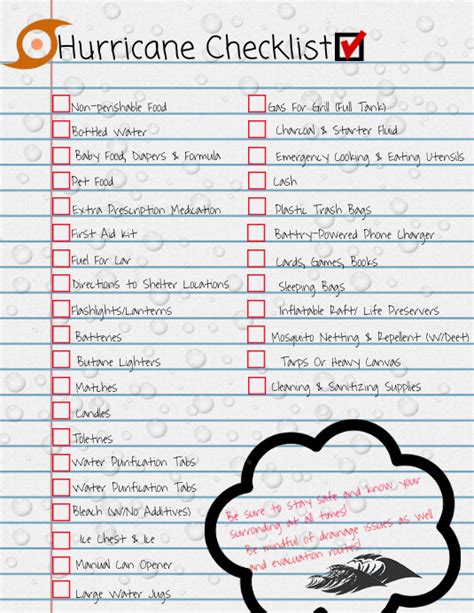 Hurricane Checklist
Non-perishable Food
Bottled Water
Baby Food, Diapers & Formula
Pet Food
Extra Prescription Medication
First Aid Kit
Fuel For Car
Directions to Shelter Locations
Flashlights/Lanterns
Batteries
Butane Lighters
Matches
Candles
Toiletries
Water Purification Tabs
Water Purification Tabs
Bleach (W/No Additives)
Ice Chest & Ice
Manual Can Opener
Large Water Jugs
Gas For Grill (Full Tank)
Charcoal & Starter Fluid
Emergency Cooking & Eating Utensils
Cash
Plastic Trash Bags
Battry-Powered Phone Charger
Cards, Games, Books
Sleeping Bags
Inflatable Raft/ Life Preservers
Mosquito Netting & Repellent (W/Deet)
Tarps Or Heavy Canvas
Cleaning & Sanitizing Supplies
Be sure to stay safe and know your
surronding at all times!
Be mindful of drainage issues as well
and evacuation routes!